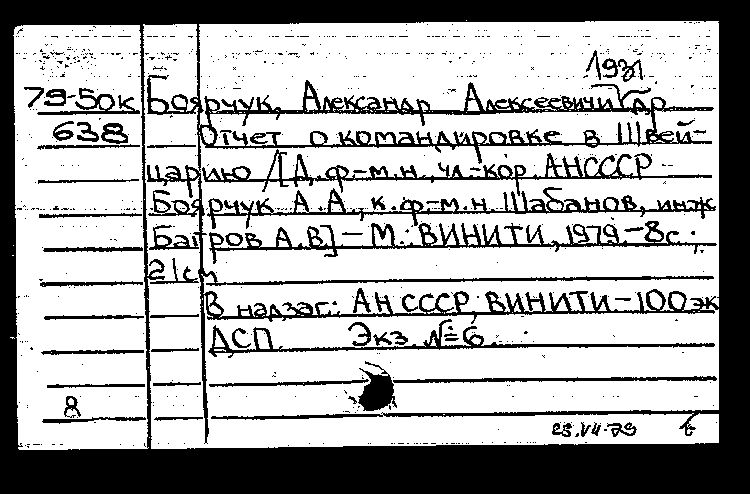 1931
79-50к Боярчук, Александр Алексеевич и др
638 Отчет о командировке в Швей-
царию /[Д.ф.-м.н., чл.-кор. АНСССР
Боярчук А.А., к.ф.-м.н. Шабанов, инж
Багров А.В] – М.: ВИНИТИ, 1979.-8с.;
21см
В надзаг.: АН СССР, ВИНИТИ – 100 эк
ДСП. Экз. №6.
8
23.VII.79